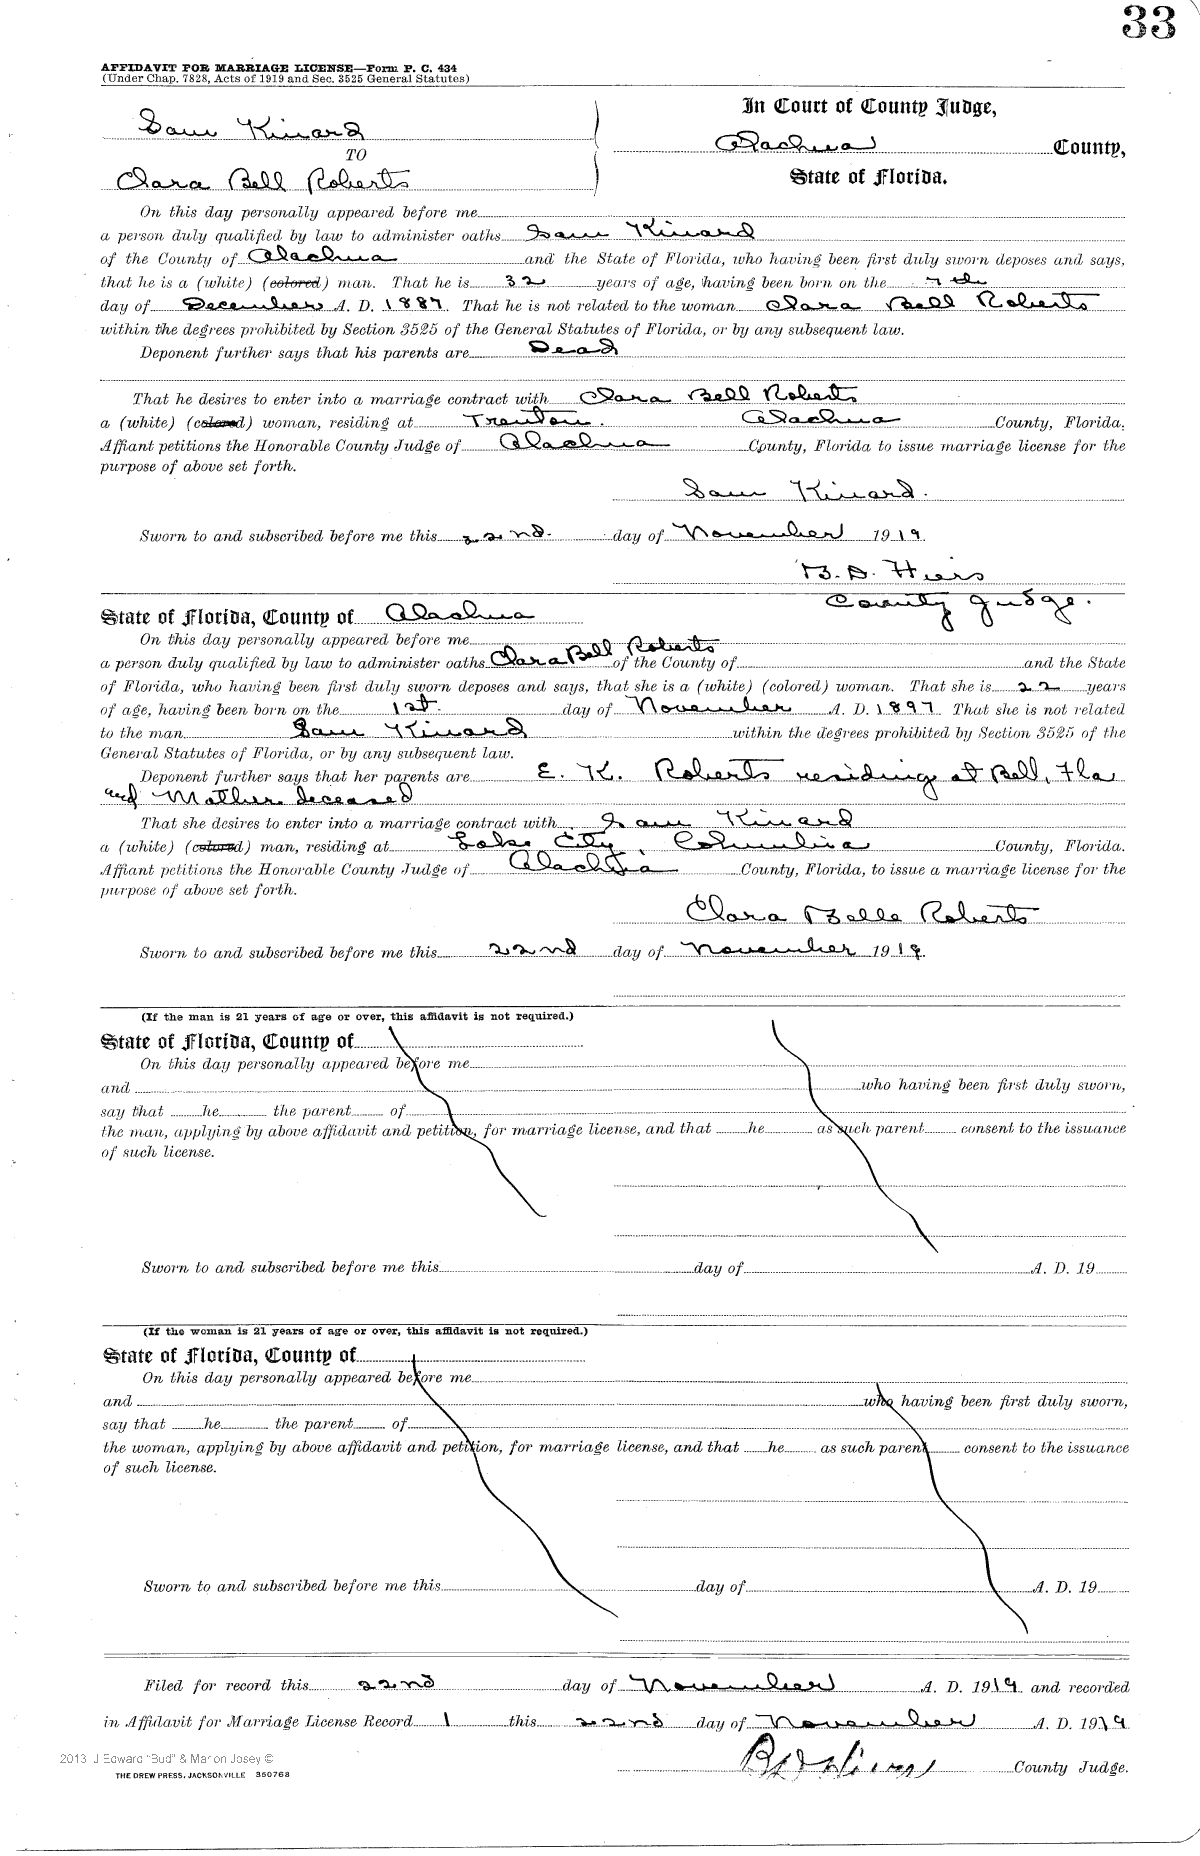 33
AFFIDAVIT FOR MARRIAGE LICENSE—Form P. C. 434
(Under Chap. 7828, Acts of 1919 and Sec. 3525 General Statutes)
Sam Kinard
TO
Clara Bell Roberts
In Court of County Judge,
Alachua County,
State of Florida.
On this day personally appeared before me
a person duly qualified by law to administer oaths Sam Kinard
of the County of Alachua and the State of Florida, who having been first duly sworn deposes and says,
that he is a (white) (colored) man. That he is 32 years of age, having been born on the 7th
day of December A. D. 1887. That he is not related to the woman Clara Bell Roberts
within the degrees prohibited by Section 3525 of the General Statutes of Florida, or by any subsequent law.
Deponent further says that his parents are Dead
That he desires to enter into a marriage contract with Clara Bell Roberts
a (white) (colored) woman, residing at Trenton. Alachua County, Florida.
Affiant petitions the Honorable County Judge of Alachua County, Florida to issue marriage license for the
purpose of above set forth.
Sam Kinard.
Sworn to and subscribed before me this 22nd. day of November 1919.
County Judge.
State of Florida, County of Alachua
On this day personally appeared before me
a person duly qualified by law to administer oaths Clara Bell Roberts of the County of and the State
of Florida, who having been first duly sworn deposes and says, that she is a (white) (colored) woman. That she is 22 years
of age, having been born on the 1st. day of November A. D. 1897 That she is not related
to the man Sam Kinard within the degrees prohibited by Section 3525 of the
General Statutes of Florida, or by any subsequent law.
Deponent further says that her parents are E. K. Roberts residing at Bell, Fla
and Mother deceased
That she desires to enter into a marriage contract with Sam Kinard
a (white) (colored) man, residing at Lake City, Columbia County, Florida.
Affiant petitions the Honorable County Judge of Alachua County, Florida, to issue a marriage license for the
purpose of above set forth.
Clara Belle Roberts
Sworn to and subscribed before me this 22nd day of November 1919.
(If the man is 21 years of age or over, this affidavit is not required.)
State of Florida, County of
On this day personally appeared before me
and who having been first duly sworn,
say that he the parent of
the man, applying by above affidavit and petition, for marriage license, and that he as such parent consent to the issuance
of such license.
Sworn to and subscribed before me this day of A. D. 19
(If the woman is 21 years of age or over, this affidavit is not required.)
State of Florida, County of
On this day personally appeared before me
and who having been first duly sworn,
say that he the parent of
the woman, applying by above affidavit and petition, for marriage license, and that he as such parent consent to the issuance
of such license.
Sworn to and subscribed before me this day of A. D. 19
Filed for record this 22nd day of November A. D. 1919 and recorded
in Affidavit for Marriage License Record 1 this 22nd day of November A. D. 1919
County Judge.
2013 J Edward "Bud" & Marion Josey ©
THE DREW PRESS, JACKSONVILLE 350768